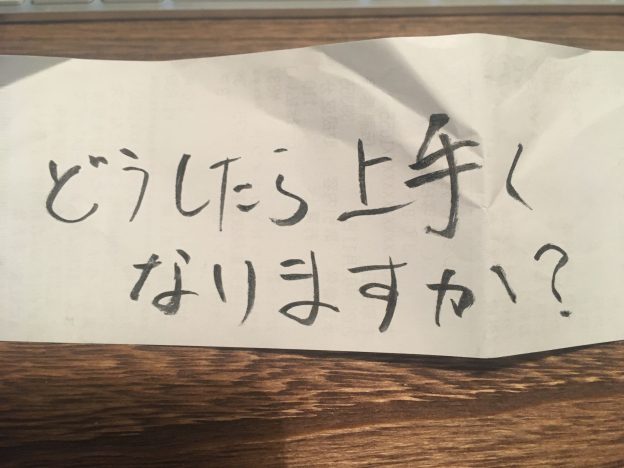 どうしたら上手く
なりますか?